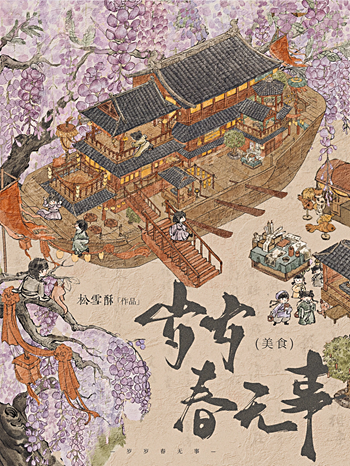 松雪酥「作品」
岁岁
(美食)
春无事
— 岁岁春无事 —